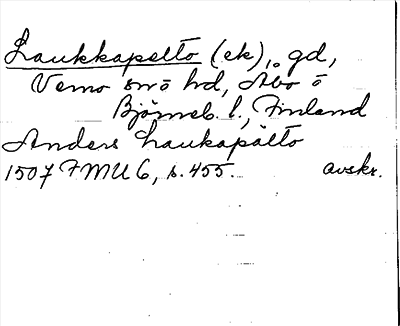 Laukkapelto (ek), gd,
Vemo snö hd, Åbo o
Björneb. l., Finland
Anders Laukapälto
1507 FMU 6, s. 455. avskr.